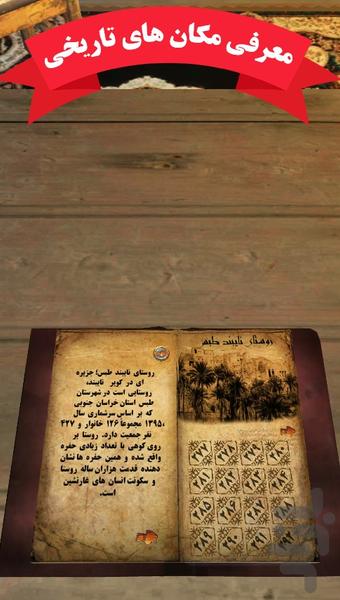 معرفی مکان های تاریخی
روستای نایبند طبس
روستای نایبند طبس؛ جزیره
ای در کویر نایبند،
روستایی است در شهرستان
طبس استان خراسان جنوبی
که بر اساس سرشماری سال
۱۳۹۵، مجموعا ۱۲۶ خانوار و ۴۲۷
نفر جمعیت دارد. روستا بر
روی کوهی با تعداد زیادی حفره
واقع شده و همین حفره ها نشان
دهنده قدمت هزاران ساله روستا
و سکونت انسان های غارنشین
است.
۲۷۷ ۲۷۸ ۲۷۹ ۲۸۰
۲۸۱ ۲۸۲ ۲۸۳ ۲۸۴
۲۸۵ ۲۸۶ ۲۸۷ ۲۸۸
۲۸۹ ۲۹۰ ۲۹۱ ۲۹۲